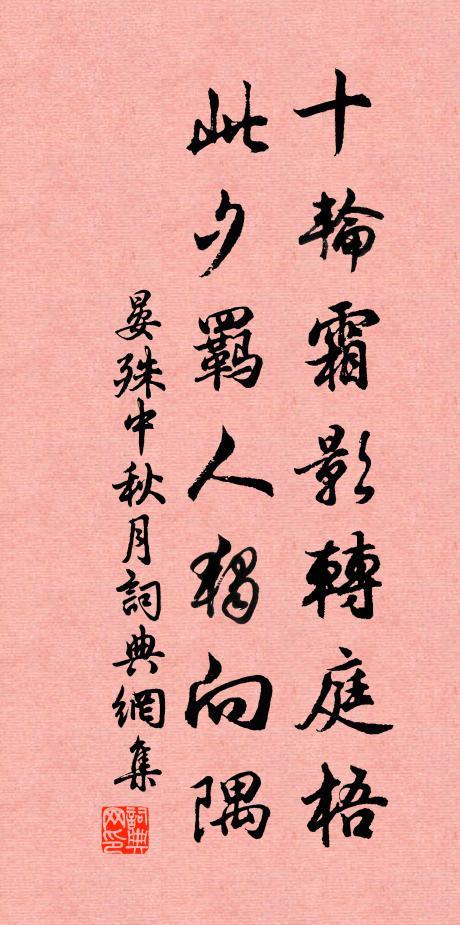 十輪霜影轉庭梧
此夕羈人獨向隅
晏殊中秋月詞典網集
詞典网印